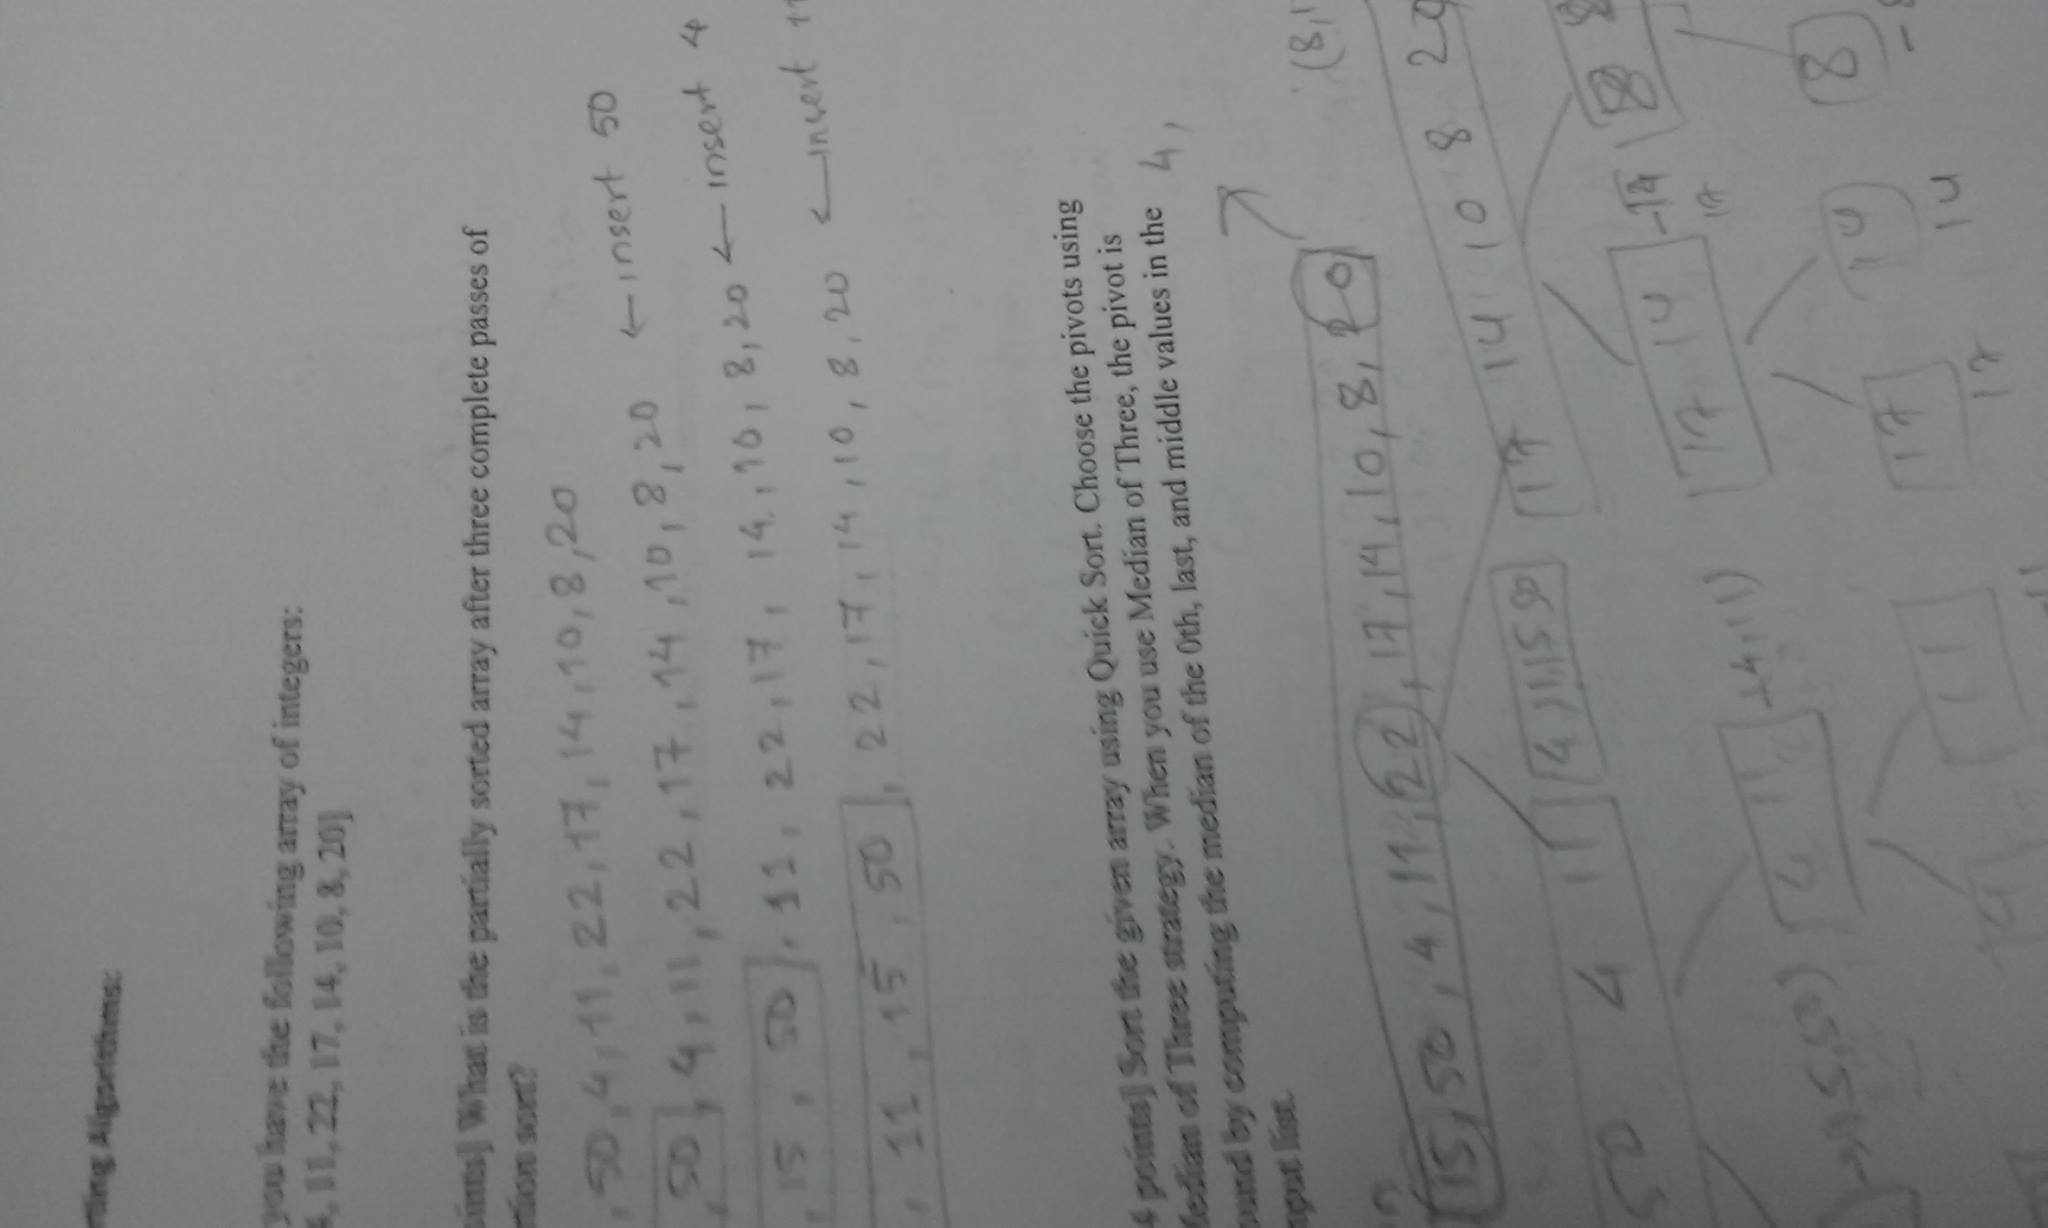 Algorithms:
you have the following array of integers:
11, 22, 17, 14, 10, 8, 20]
What is the partially sorted array after three complete passes of
sort?
, 50, 4, 11, 22, 17, 14, 10, 8, 20
, 50, 4, 11, 22, 17, 14, 10, 8, 20 ← insert 50
, 15, 50, 11, 22, 17, 14, 10, 8, 20 ← insert 4
, 11, 15, 50, 22, 17, 14, 10, 8, 20 ← insert 11
4 points] Sort the given array using Quick Sort. Choose the pivots using
Median of Three strategy. When you use Median of Three, the pivot is
by computing the median of the 0th, last, and middle values in the 4,
list.
(8,
15, 50, 4, 11, 22, 17, 14, 10, 8, 20
50 4 11 4 11, 15 50 17 14 10 8 20
17 14 17 8
15, 50) 4 11 4, 11)
11 17 14 8
17 14
11